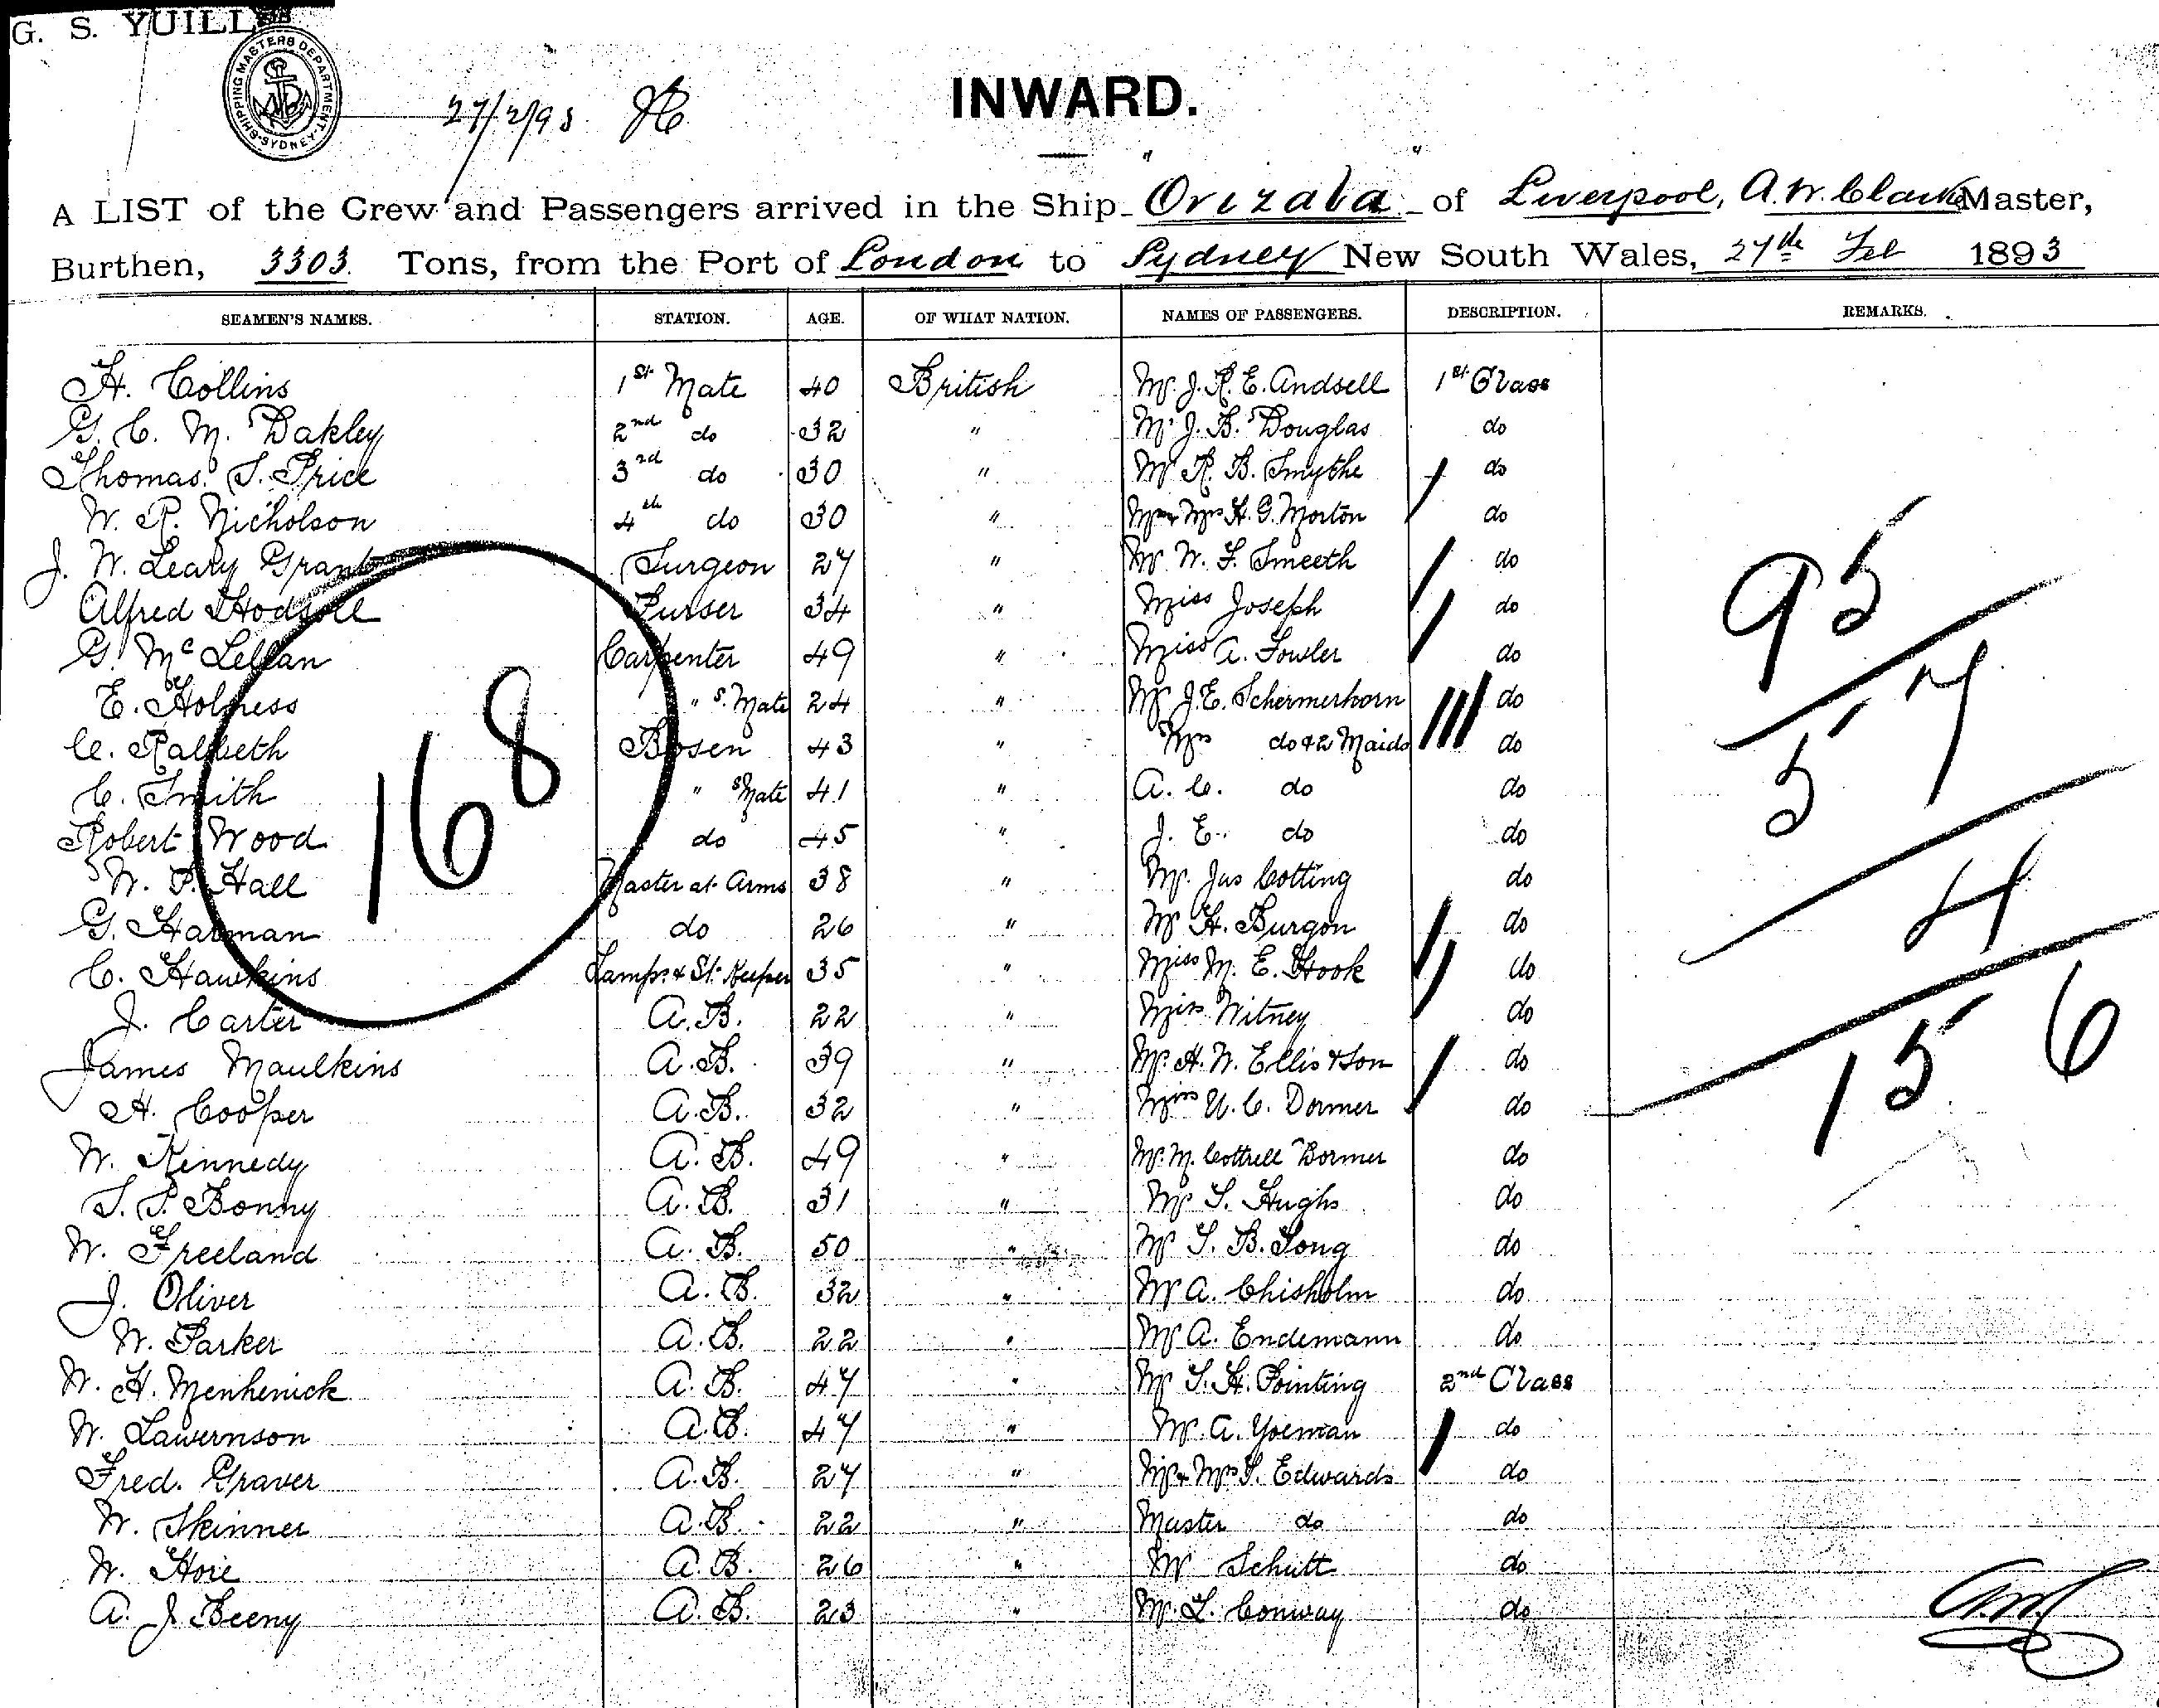 G. S. YUILL
SHIPPING MASTERS DEPARTMENT SYDNEY
27/2/93
INWARD.
A LIST of the Crew and Passengers arrived in the Ship "Orizaba" of Liverpool, A. W. Clarke Master,
Burthen, 3303 Tons, from the Port of London to Sydney New South Wales, 27th Feb 1893
SEAMEN'S NAMES. STATION. AGE. OF WHAT NATION. NAMES OF PASSENGERS. DESCRIPTION. REMARKS.
H. Collins 1st Mate 40 British Mr J. R. E. Andsell 1st Class
G. C. M. Dakley 2nd do 32 " Mr J. B. Douglas do
Thomas S. Price 3rd do 30 " Mr R. B. Smythe do
W. R. Nicholson 4th do 30 " Mr & Mrs H. G. Morton do
J. W. Leary Grant Surgeon 27 " Mr W. F. Smeeth do
Alfred Hodsoll Purser 34 " Miss Joseph do
G. McLellan Carpenter 49 " Miss A. Fowler do
E. Holness " s. Mate 24 " Mr J. E. Schermerhorn do
C. Ralbeth Bosen 43 " Mrs do & 2 Maids do
C. Smith " s Mate 41 " A. C. do do
Robert Wood do 45 " J. E. do do
W. P. Hall Master at Arms 38 " Mr. Jas Cotting do
G. Harman do 26 " Mr H. Burgon do
C. Hawkins Lamps & St. Keeper 35 " Miss M. E. Hook do
J. Carter A.B. 22 " Miss Witney do
James Maulkins A.B. 39 " Mr. H. W. Ellis & Son do
H. Cooper A.B. 32 " Miss U. C. Dormer do
W. Kennedy A.B. 49 " Mr. M. Cottrell Dormer do
S. P. Bonny A.B. 31 " Mr S. Hughs do
W. Freeland A.B. 50 " Mr S. B. Long do
J. Oliver A.B. 32 " Mr A. Chisholm do
W. Parker A.B. 22 " Mr A. Endemann do
W. H. Menhenick A.B. 47 " Mr S. H. Pointing 2nd Class
W. Lawernson A.B. 47 " Mr. A. Yoeman do
Fred. Graver A.B. 27 " Mr & Mrs S. Edwards do
W. Skinner A.B. 22 " Master do do
W. Hoie A.B. 26 " Mr Schutt do
A. J. Beeny A.B. 23 " Mr. L. Conway do
168
95
57
4
156